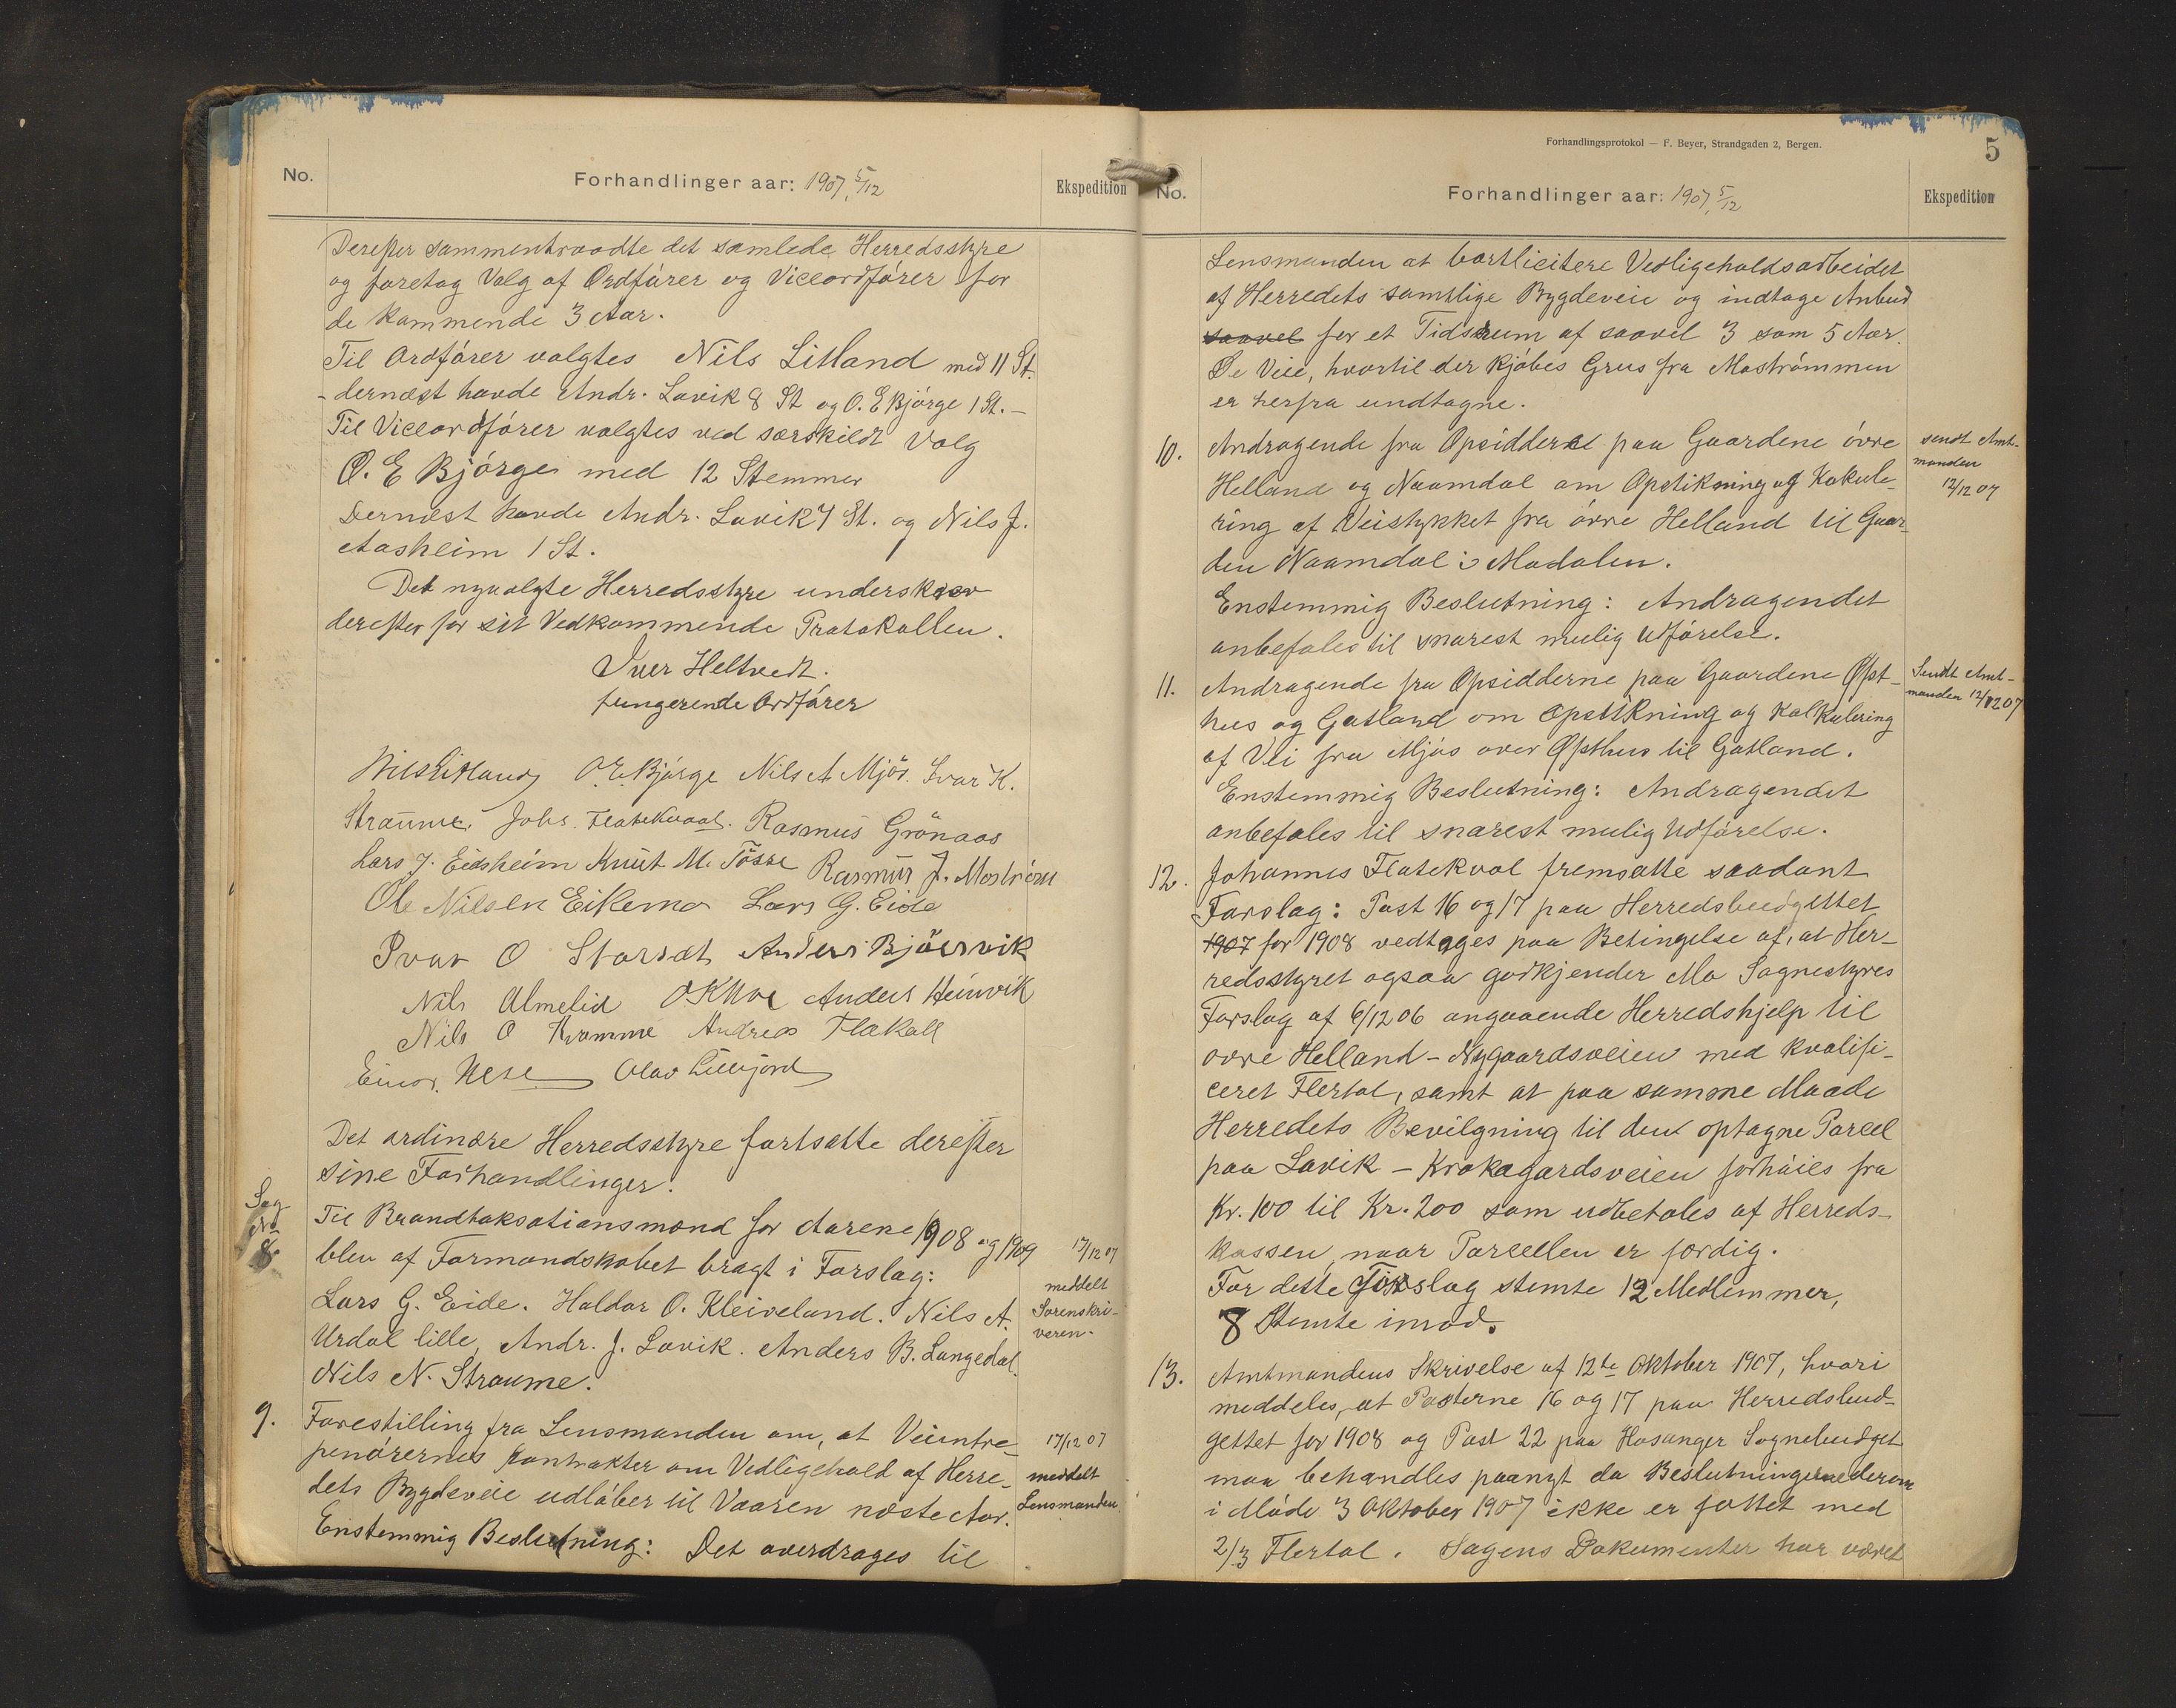 No.
Forhandlinger aar: 1907, 5/12
Ekspedition
Derefter sammentraadte det samlede Herredsstyre
og foretog Valg af Ordfører og Viceordfører for
de kommende 3 Aar.
Til Ordfører valgtes Nils Litland med 11 St.
- dernæst havde Andr. Lavik 8 St og O. E Bjørge 1 St. -
Til Viceordfører valgtes ved særskildt Valg
O. E Bjørge med 12 Stemmer
Dernæst havde Andr. Lavik 7 St. og Nils J.
Aasheim 1 St.
Det nyvalgte Herredsstyre underskrev
derefter for sit Vedkommende Protokollen.
Iver Heltvedt.
fungerende Ordfører
Nils Litland O. E. Bjørge Nils A Mjøs. Ivar K.
Straume. Johs. Flatekvaal. Rasmus Grønaas
Lars J. Eidsheim Knut M. Tøsse Rasmus J. Mostrøm
Ole Nilsen Eikemo Lars G. Eide
Ivar O Storset Anders Bjørsvik
Nils Almelid O K Anders Heinvik
Nils O Kvamme Andreas
Einar Nese Olav
Det ordinære Herredsstyre fortsatte derefter
sine Forhandlinger.
Sag
No
8.
Til Brandtaksationsmænd for Aarene 1908 og 1909
blev af Formandskabet bragt i Forslag:
Lars G. Eide. Haldor O. Kleiveland. Nils A.
Urdal lille, Andr. J. Lavik. Anders B. Langedal.
Nils N. Straume.
17/12 07
meddelt
Sorenskri-
veren-
9.
Forestilling fra Lensmanden om, at Veientre-
penørernes Kontrakter om Vedligehold af Herre-
dets Bygdeveie udløber til Vaaren næste Aar.
Enstemmig Beslutning: Det overdrages til
17/12 07
meddelt
Lensmanden
Forhandlingsprotokol — F. Beyer, Strandgaden 2, Bergen.
5
No.
Forhandlinger aar: 1907, 5/12
Ekspedition
Lensmanden at bortlicitere Vedligeholdsarbeidet
af Herredets samtlige Bygdeveie og indtage Anbud
saavel for et Tidsrum af saavel 3 som 5 Aar.
De Veie, hvortil der kjøbes Grus fra Mostrømmen
er herfra undtagne.
10.
Andragende fra Opsidderne paa Gaardene øvre
Helland og Naamdal om Opstikning og Kakule-
ring af Veistykket fra øvre Helland til Gaar-
den Naamdal i Modalen.
Enstemmig Beslutning: Andragendet
anbefales til snarest mulig Udførelse.
sendt Amt-
manden
12/12 07
11.
Andragende fra Opsidderne paa Gaardene Øpst-
hus og Gatland om Opstikning og Kalkulering
af Vei fra Mjøs over Øpsthus til Gatland.
Enstemmig Beslutning: Andragendet
anbefales til snarest mulig Udførelse.
Sendt Amt-
manden 12/12 07
12.
Johannes Flatekval fremsatte saadant
Forslag: Post 16 og 17 paa Herredsbudgettet
1907 for 1908 vedtages paa Betingelse af, at Her-
redsstyret ogsaa godkjender Mo Sognestyres
Forslag af 6/12 06 angaaende Herredshjelp til
øvre Helland - Nygaardsveien med kvalifi-
ceret Flertal, samt at paa samme Maade
Herredets Bevilgning til den optagne Parcel
paa Lavik - Krokagardsveien forhøies fra
Kr. 100 til Kr. 200 som udbetales af Herreds-
kassen, naar Parcellen er færdig.
For dette Forslag stemte 12 Medlemmer,
8 stemte imod.
13.
Amtmandens Skrivelse af 12te Oktober 1907, hvori
meddeles, at Posterne 16 og 17 paa Herredsbud-
gettet for 1908 og Post 22 paa Hosanger Sognebudget
maa behandles paanyt da Beslutningerne derom
i Møde 3 Oktober 1907 ikke er fattet med
2/3 Flertal. Sagens Dokumenter har været